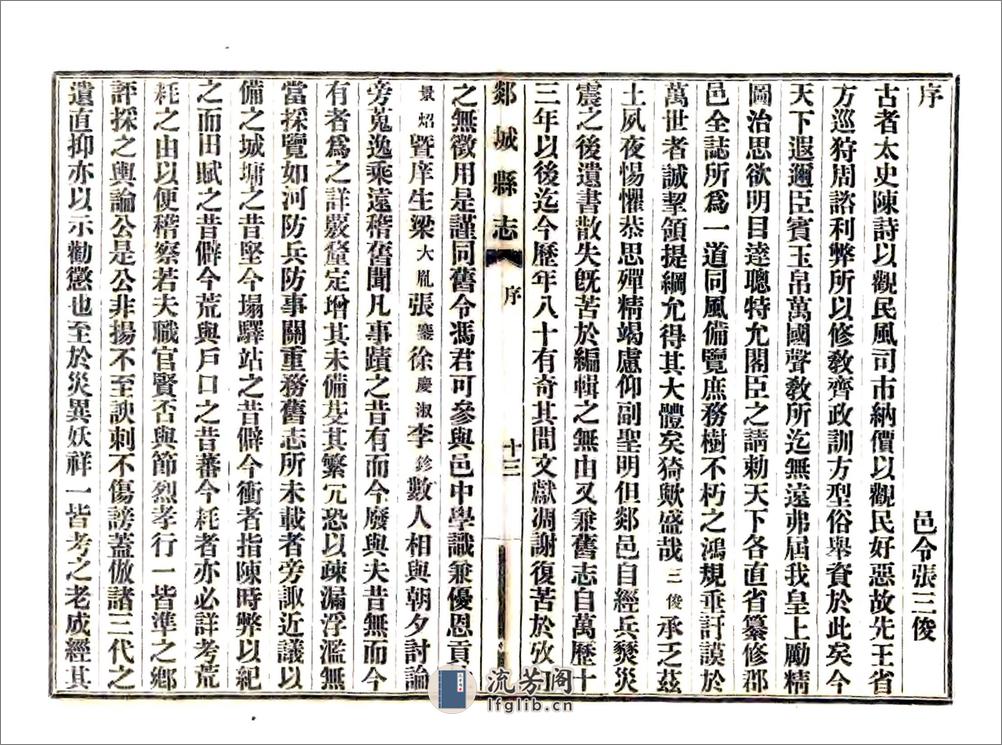 序
邑令張三俊
古者太史陳詩以觀民風司市納價以觀民好惡故先王省
方巡狩周諮利弊所以修敎齊政訓方型俗舉資於此矣今
天下遐邇臣賓玉帛萬國聲敎所迄無遠弗屆我皇上勵精
圖治思欲明目達聰特允閣臣之請勅天下各直省纂修郡
邑全誌所爲一道同風備覽庶務樹不朽之鴻規垂訏謨於
萬世者誠挈領提綱允得其大體矣猗歟盛哉三俊承乏茲
土夙夜惕懼恭思殫精竭慮仰副聖明但郯邑自經兵燹災
震之後遺書散失旣苦於編輯之無由又兼舊志自萬歷十
三年以後迄今歷年八十有奇其間文獻凋謝復苦於攷
郯城縣志 序 十三
之無徵用是謹同舊令馮君可參與邑中學識兼優恩貢
景炤暨庠生梁大胤張鑒徐慶淑李鉁數人相與朝夕討論
旁蒐逸乘遠稽舊聞凡事蹟之昔有而今廢與夫昔無而今
有者爲之詳覈釐定增其未備芟其繁冗恐以疎漏浮濫無
當採覽如河防兵防事關重務舊志所未載者旁諏近議以
備之城墉之昔堅今塌驛站之昔僻今衝者指陳時弊以紀
之而田賦之昔僻今荒與戶口之昔蕃今耗者亦必詳考荒
耗之由以便稽察若夫職官賢否與節烈孝行一皆準之鄉
評採之輿論公是公非揚不至諛刺不傷謗蓋倣諸三代之
遺直抑亦以示勸懲也至於災異妖祥一皆考之老成經其
流芳阁
lfglib.cn